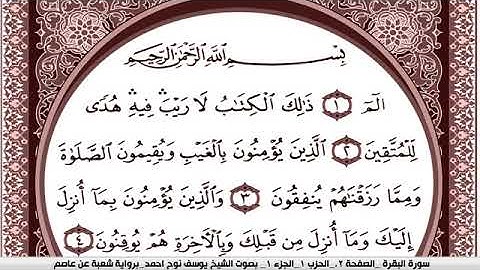 بِسْمِ اللَّهِ الرَّحْمَٰنِ الرَّحِيمِ
الٓمٓ ١ ذَٰلِكَ الْكِتَابُ لَا رَيْبَ ۛ فِيهِ ۛ هُدًى
لِّلْمُتَّقِينَ ٢ الَّذِينَ يُؤْمِنُونَ بِالْغَيْبِ وَيُقِيمُونَ الصَّلَوٰةَ
وَمِمَّا رَزَقْنَاهُمْ يُنفِقُونَ ٣ وَالَّذِينَ يُؤْمِنُونَ بِمَا أُنزِلَ
إِلَيْكَ وَمَا أُنزِلَ مِن قَبْلِكَ وَبِالْآخِرَةِ هُمْ يُوقِنُونَ ٤
سورة البقرة _الصفحة ٢_ الحزب ١_الجزء ١_ بصوت الشيخ يوسف نوح احمد_برواية شعبة عن عاصم